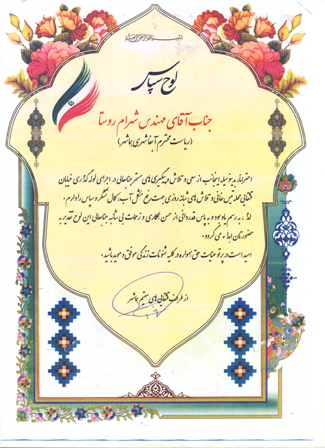 لوح سپاس
جناب آقای مهندس شهرام روستا
(ریاست محترم آبفا شهری بهامشهر)
احتراماً بدینوسیله اینجانب از سعی و تلاش و پیگیری های مستمر جنابعالی در اجرای لوله گذاری خیابان
تلاش های شبانه روزی جهت رفع مشکل آب، کمال تشکر و سپاس را دارم.
لذا به رسم یادبود و به پاس قدردانی از حسن همکاری و زحمات بی شائبه جنابعالی این لوح تقدیر به
حضورتان اهداء می گردد.
امید است در پرتو عنایات حق همواره در کلیه شئونات زندگی موفق و موید باشید.
از طرف مقیم